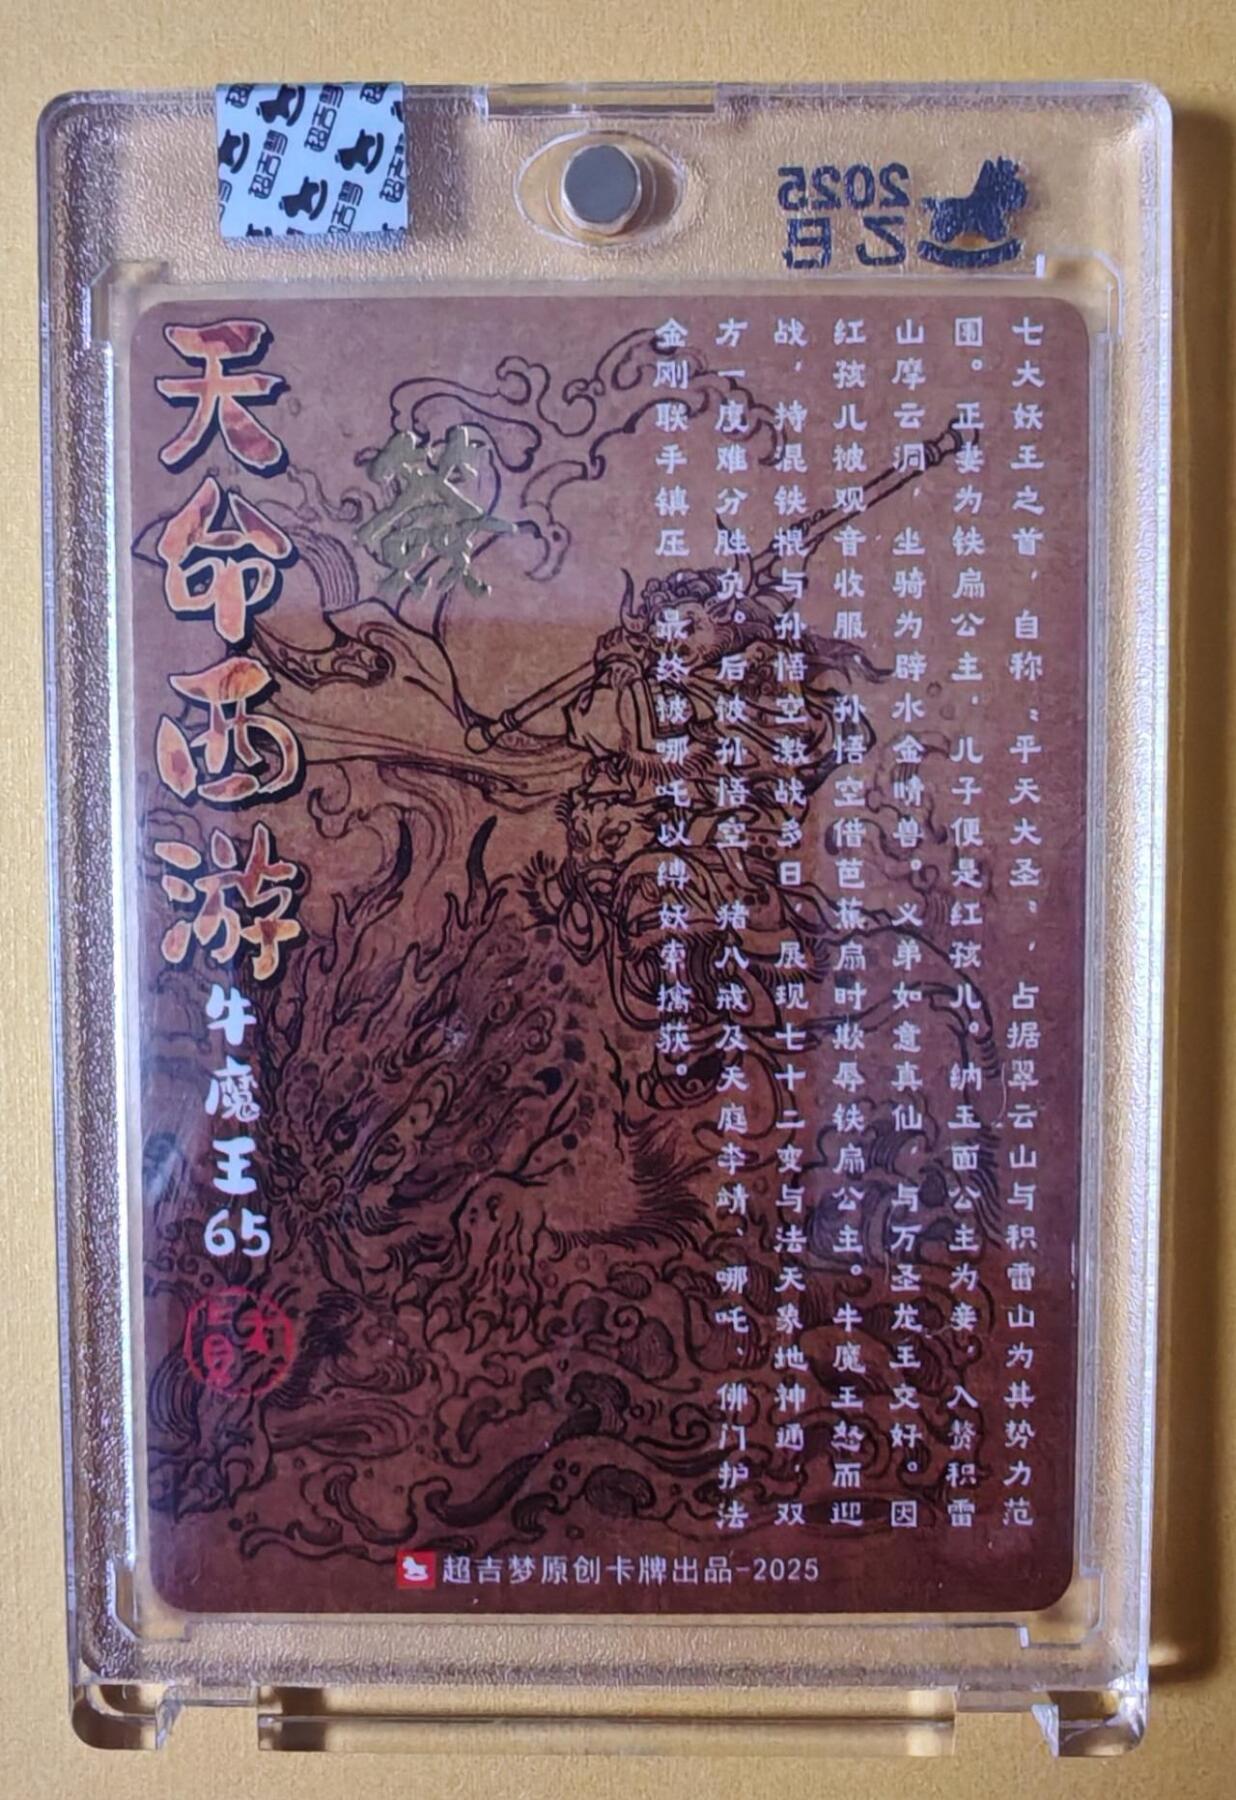 2025
乙巳
超吉梦
天命西游
牛魔王65
七大妖王之首，自称“平天大圣”，占据翠云山与积雷山为其势力范
围。正妻为铁扇公主，儿子便是红孩儿。纳玉面公主为妾，入赘积雷
山摩云洞，坐骑为辟水金睛兽。义弟如意真仙，与万圣龙王交好。因
红孩儿被观音收服，孙悟空借芭蕉扇时欺辱铁扇公主。牛魔王怒而迎
战，持混铁棍与孙悟空激战多日，展现七十二变与法天象地神通，双
方一度难分胜负。后被孙悟空、猪八戒及天庭李靖、哪吒、佛门护法
金刚联手镇压，最终被哪吒以缚妖索擒获。
超吉梦原创卡牌出品-2025